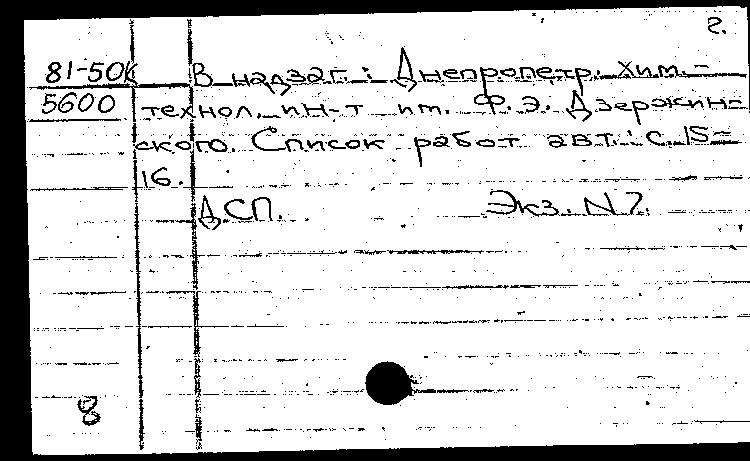 2.
81-50к В надзаг.: Днепропетр. хим.-
5600 технол. ин-т им. Ф. Э. Дзержин-
ского. Список работ авт.: с. 15-
16.
ДСП. Экз. N 7.
8